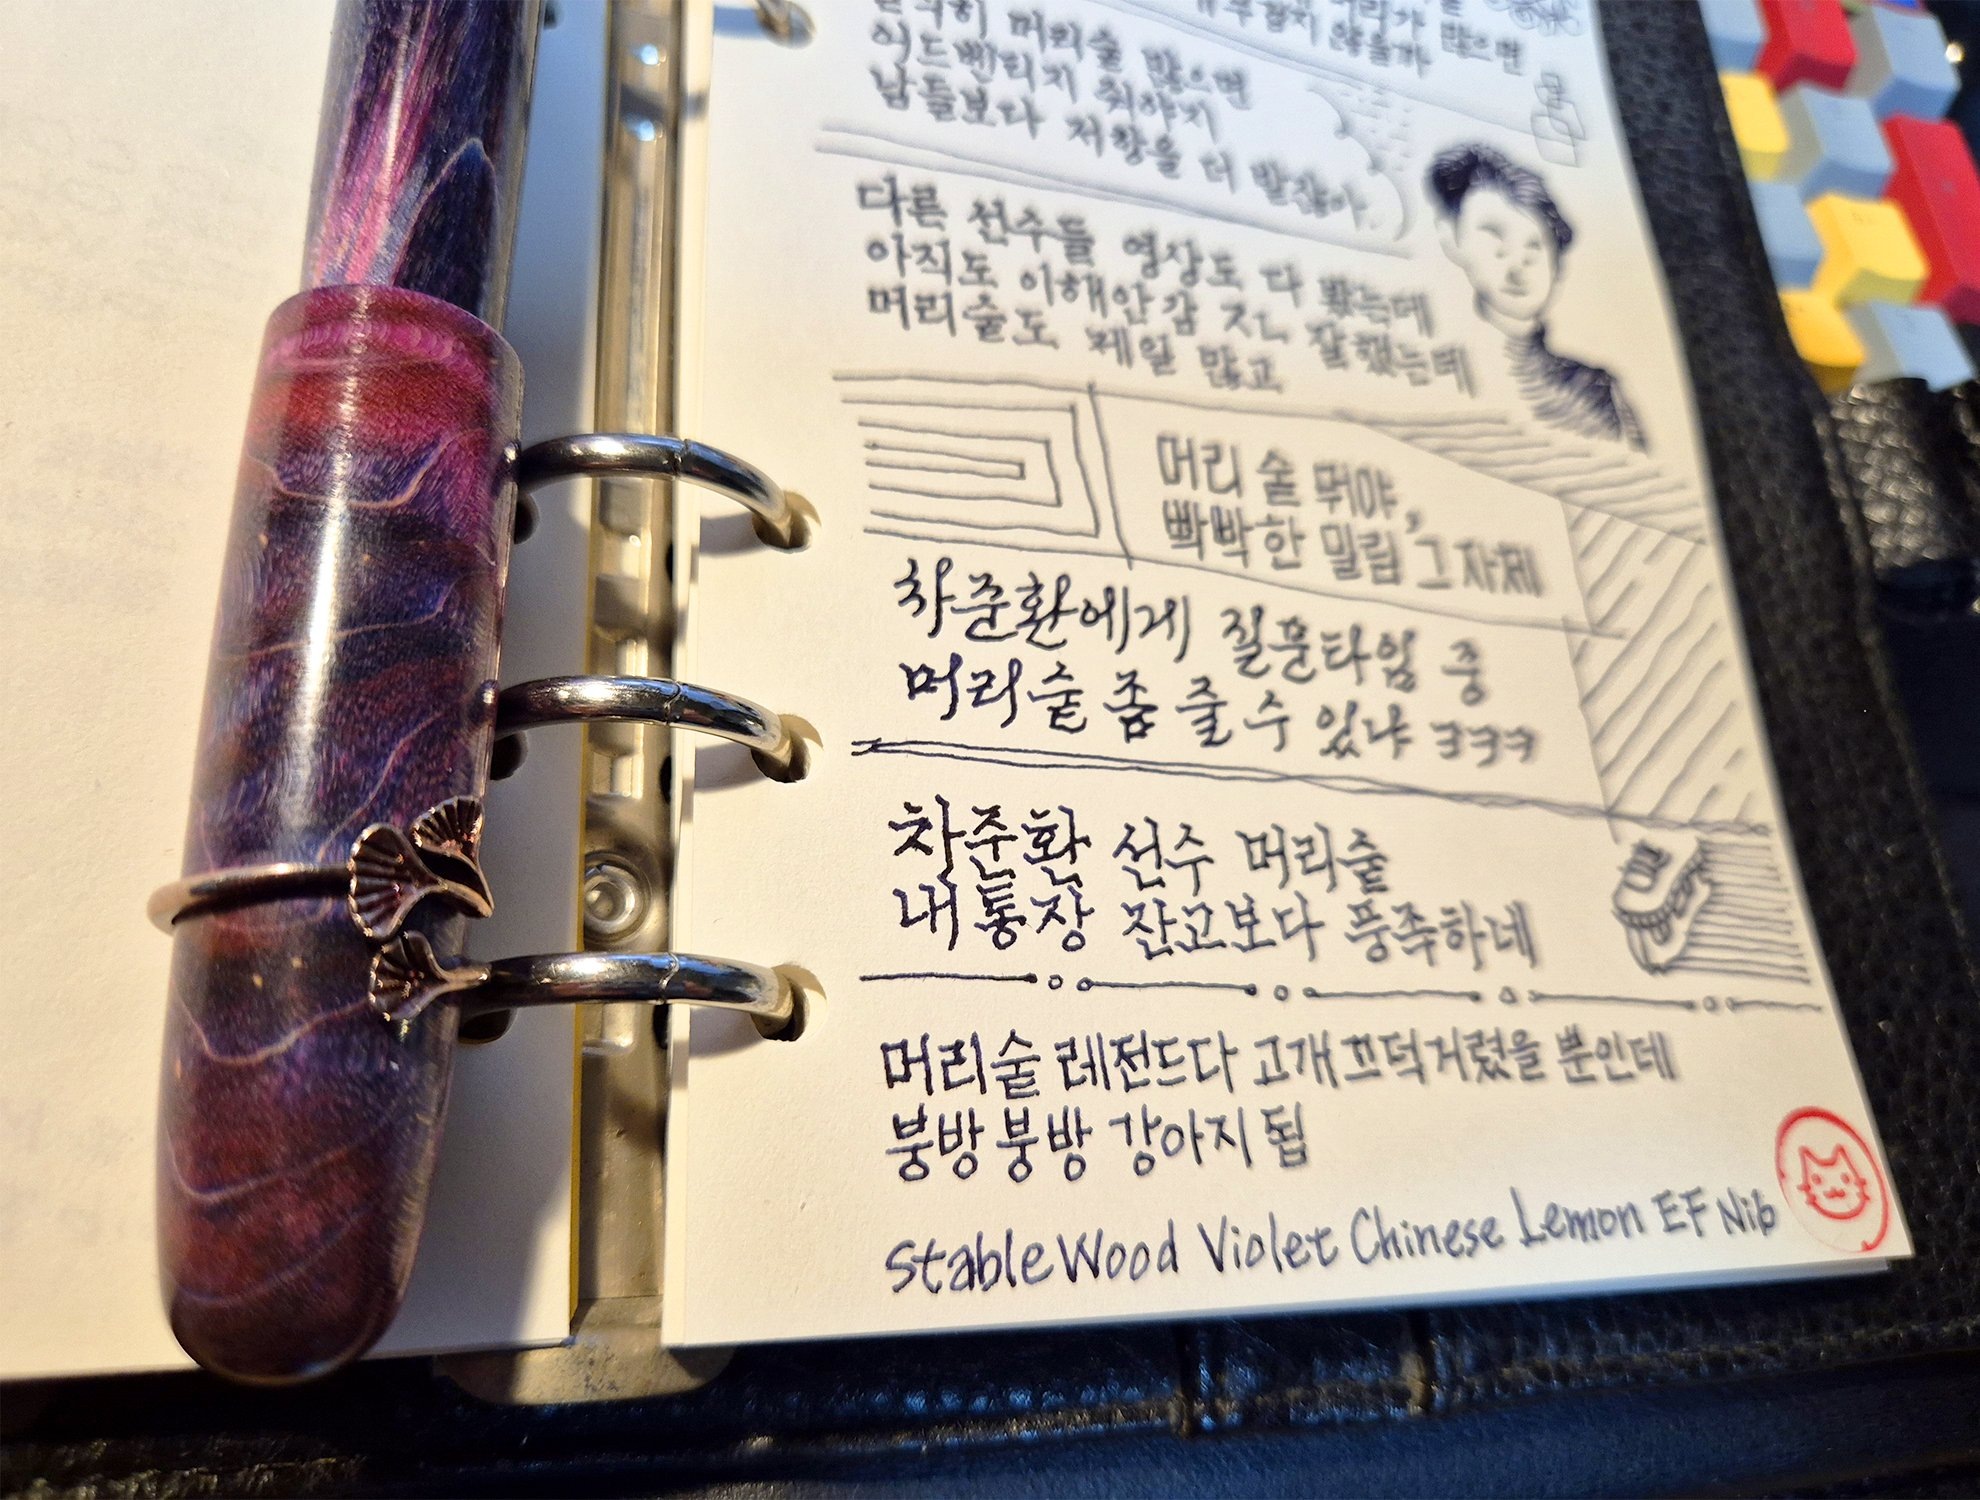 머리가 많으면
머리숱 많으면
어드벤티지 줘야지
남들보다 저항을 더 받잖아.
다른 선수들 영상도 다 봤는데
아직도 이해안감 진 잘했는데
머리숱도 제일 많고
머리 숱 뭐야,
빡빡한 밀림 그 자체
차준환에게 질문타임 중
머리숱 좀 줄 수 있냐 ㅋㅋㅋ
차준환 선수 머리숱
내 통장 잔고보다 풍족하네
머리숱 레전드다 고개 끄덕거렸을 뿐인데
붕방붕방 강아지 됩
Stable Wood Violet Chinese Lemon EF Nib